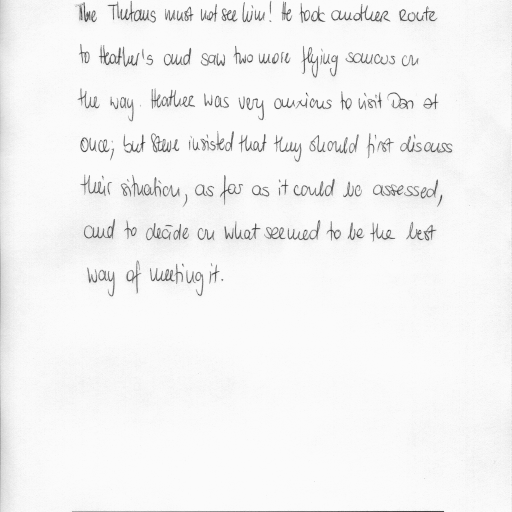 The Thetans must not see him! He took another route
to Heather's and saw two more flying saucers on
the way. Heather was very anxious to visit Dan at
once; but Steve insisted that they should first discuss
their situation, as far as it could be assessed,
and to decide on what seemed to be the best
way of meeting it.